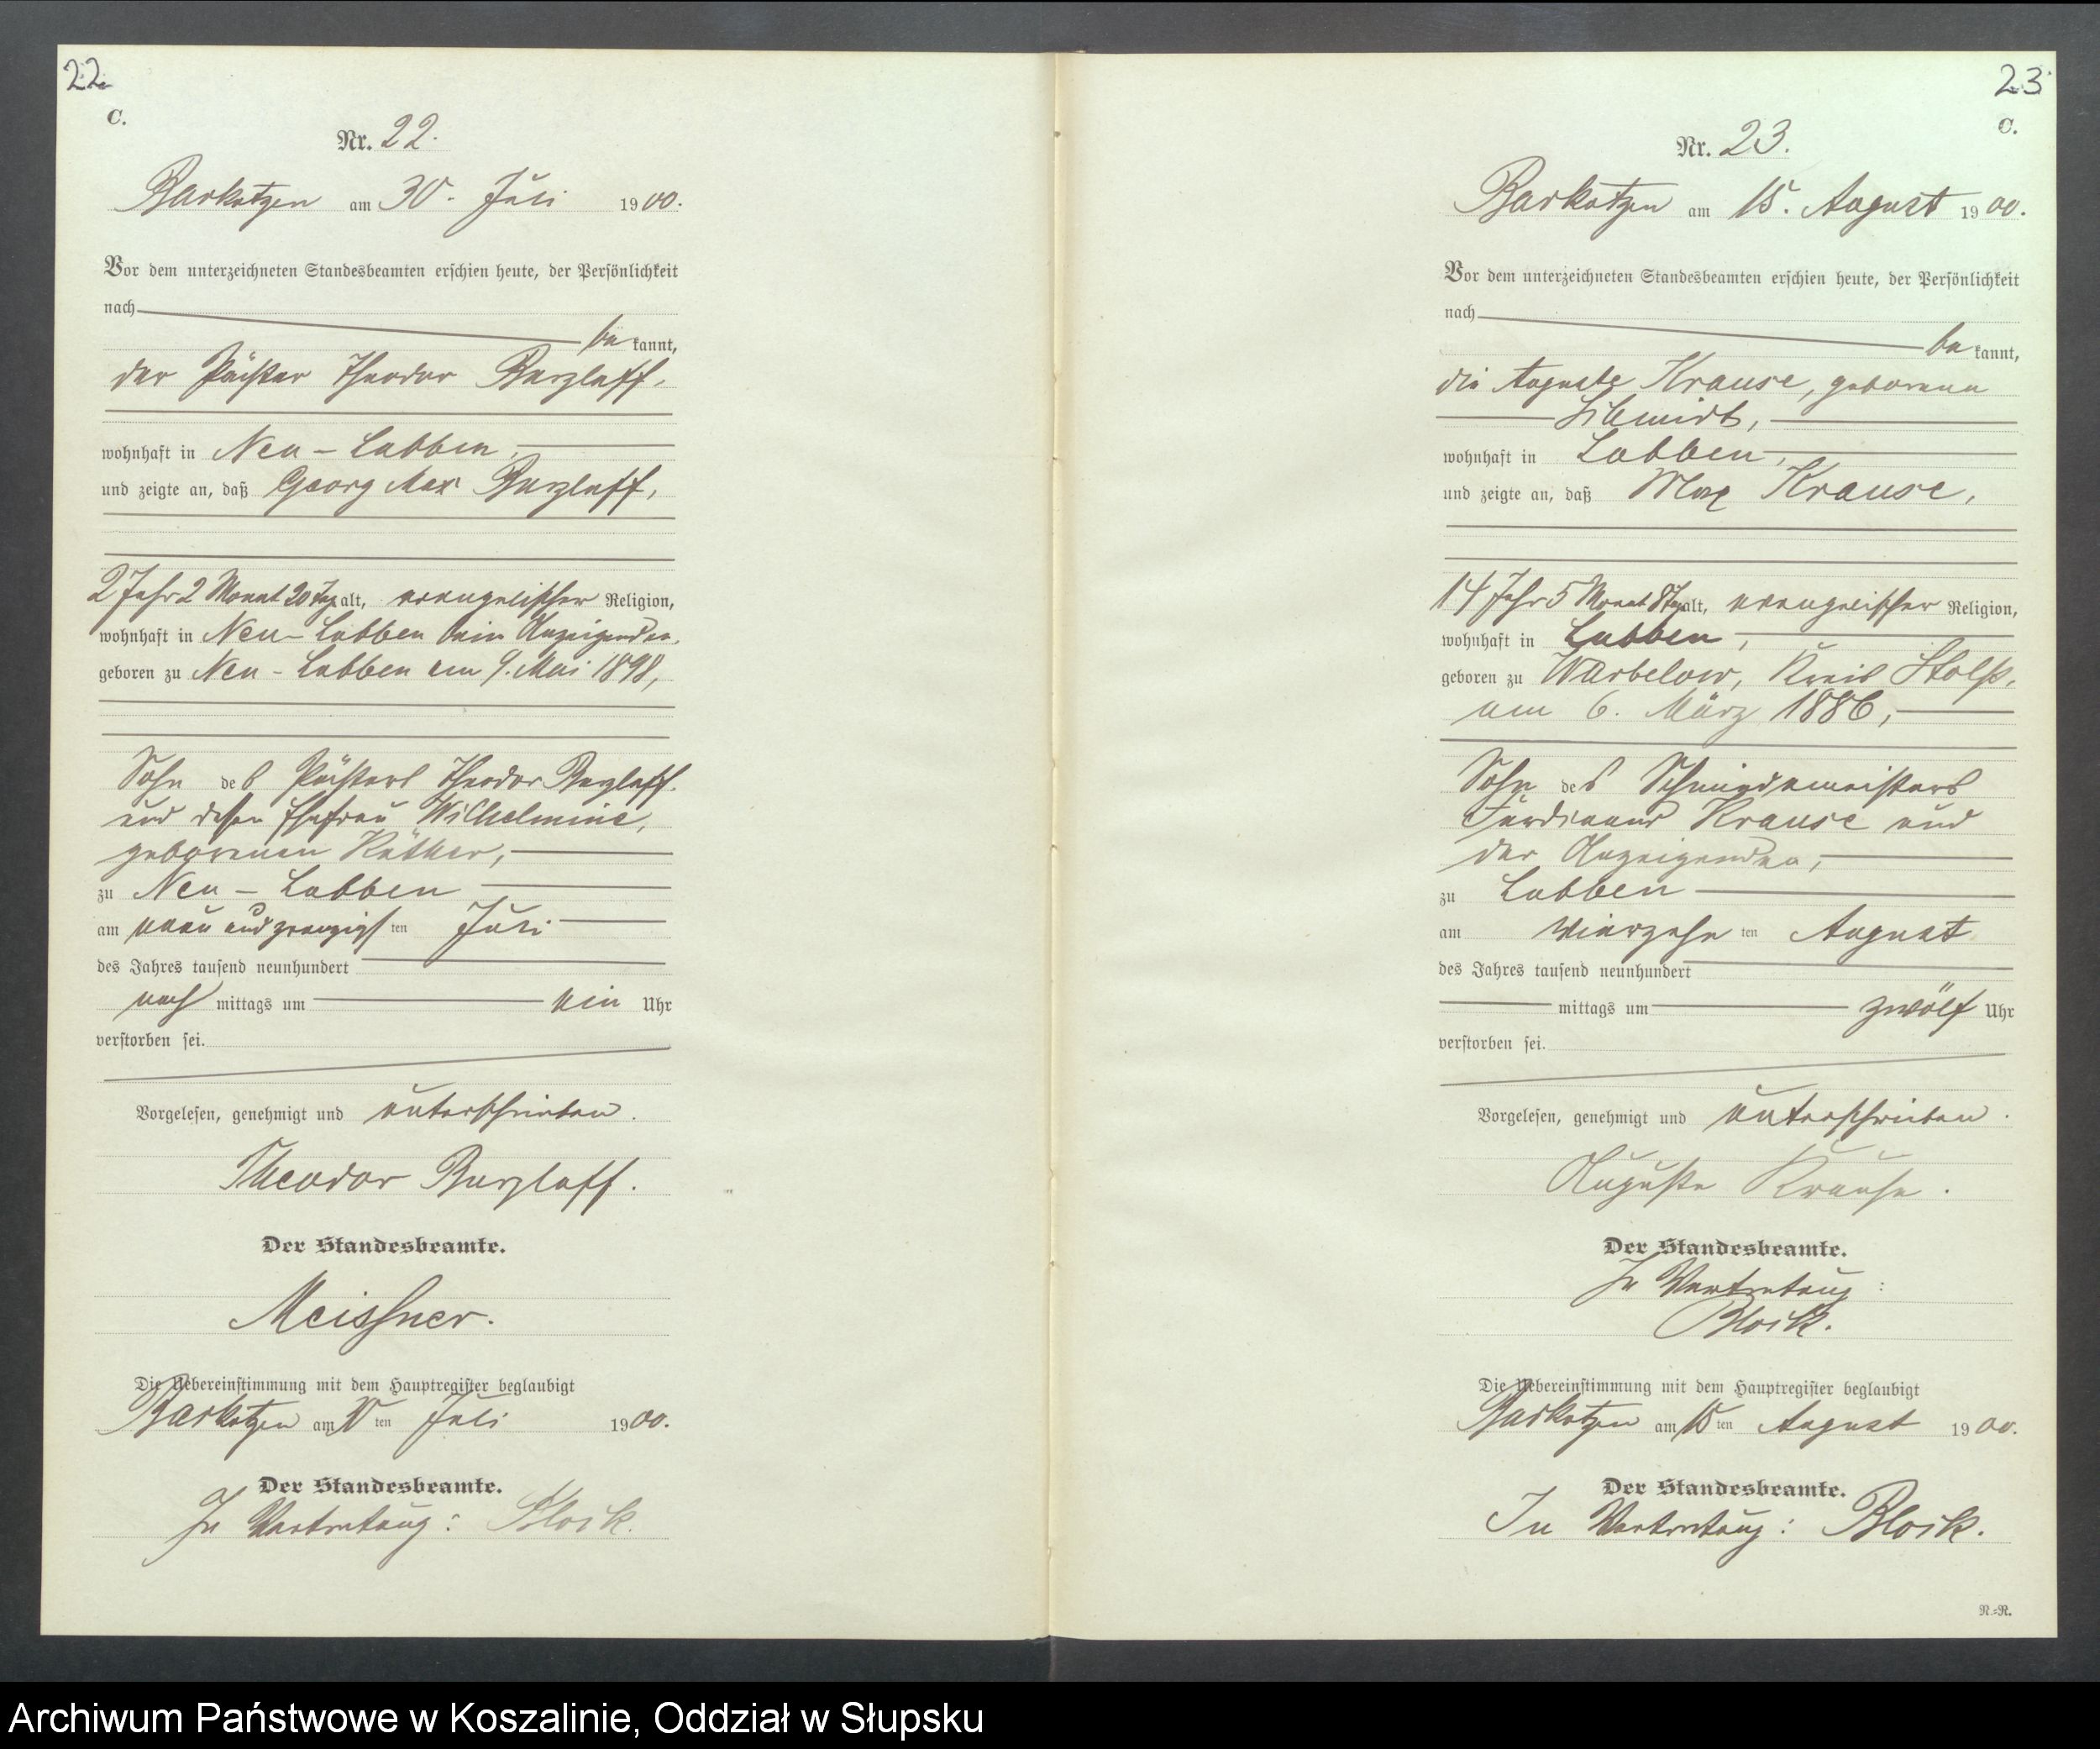 22.
C.
Nr. 22.
Barkotzen am 30. Juli 1900.
Vor dem unterzeichneten Standesbeamten erschien heute, der Persönlichkeit
nach
be kannt,
der Pächter Theodor Burzlaff,
wohnhaft in Neu-Labben,
und zeigte an, daß Georg Max Burzlaff,
2 Jahr 2 Monat 20 Tag alt, evangelischer Religion,
wohnhaft in Neu-Labben beim Anzeigenden,
geboren zu Neu-Labben am 9. Mai 1898,
Sohn des Pächters Theodor Burzlaff
und dessen Ehefrau Wilhelmine,
geborenen Käther,
zu Neu-Labben
am neun und zwanzigsten Juli
des Jahres tausend neunhundert
nach mittags um ein Uhr
verstorben sei.
Vorgelesen, genehmigt und unterschrieben.
Theodor Burzlaff.
Der Standesbeamte.
Meissner.
Die Uebereinstimmung mit dem Hauptregister beglaubigt
Barkotzen am 30ten Juli 1900.
Der Standesbeamte.
In Vertretung: Block.
23
C.
Nr. 23.
Barkotzen am 15. August 1900.
Vor dem unterzeichneten Standesbeamten erschien heute, der Persönlichkeit
nach
be kannt,
die Auguste Krause, geborene
Schmidt,
wohnhaft in Labben,
und zeigte an, daß Max Krause,
14 Jahr 5 Monat 8 Tag alt, evangelischer Religion,
wohnhaft in Labben,
geboren zu Warbelow, Kreis Stolp,
am 6. März 1886,
Sohn des Schmiedemeisters
Ferdinand Krause und
der Anzeigenden,
zu Labben
am vierzehnten August
des Jahres tausend neunhundert
mittags um zwölf Uhr
verstorben sei.
Vorgelesen, genehmigt und unterschrieben.
Auguste Krause.
Der Standesbeamte.
In Vertretung:
Block.
Die Uebereinstimmung mit dem Hauptregister beglaubigt
Barkotzen am 15ten August 1900.
Der Standesbeamte.
In Vertretung: Block.
N.-N.
Archiwum Państwowe w Koszalinie, Oddział w Słupsku